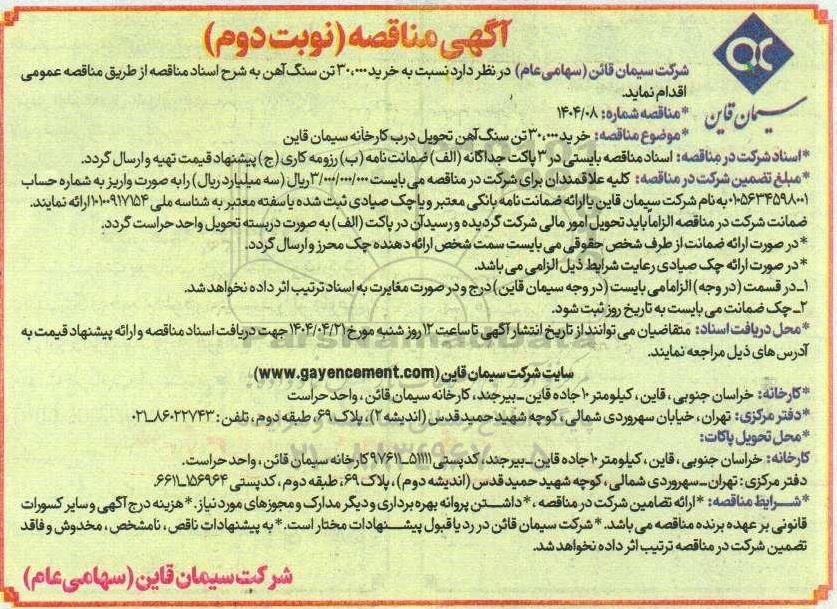 آگهی مناقصه (نوبت دوم)
شرکت سیمان قائن (سهامی عام) در نظر دارد نسبت به خرید ۳۰,۰۰۰ تن سنگ آهن به شرح اسناد مناقصه از طریق مناقصه عمومی
اقدام نماید.
سیمان قاین
*مناقصه شماره: ۱۴۰۴/۰۸
*موضوع مناقصه: خرید ۳۰,۰۰۰ تن سنگ آهن تحویل درب کارخانه سیمان قاین
*اسناد شرکت در مناقصه: اسناد مناقصه بایستی در ۳ پاکت جداگانه (الف) ضمانت نامه (ب) رزومه کاری (ج) پیشنهاد قیمت تهیه و ارسال گردد.
*مبلغ تضمین شرکت در مناقصه: کلیه علاقمندان برای شرکت در مناقصه می بایست ۳/۰۰۰/۰۰۰/۰۰۰ ریال (سه میلیارد ریال) را به صورت واریز به شماره حساب
۰۱۰۵۶۳۴۵۹۸۰۰۱ به نام شرکت سیمان قاین یا ارائه ضمانت نامه بانکی معتبر و یا چک صیادی ثبت شده یا سفته معتبر به شناسه ملی ۱۰۱۰۰۹۱۷۱۵۴ ارائه نمایند.
ضمانت شرکت در مناقصه الزاماً باید تحویل امور مالی شرکت گردیده و رسید آن در پاکت (الف) به صورت دربسته تحویل واحد حراست گردد.
*در صورت ارائه ضمانت از طرف شخص حقوقی می بایست سمت شخص ارائه دهنده چک محرز و ارسال گردد.
*در صورت ارائه چک صیادی رعایت شرایط ذیل الزامی می باشد.
۱ـ در قسمت (در وجه) الزاما می بایست (در وجه سیمان قاین) درج و در صورت مغایرت به اسناد ترتیب اثر داده نخواهد شد.
۲ـ چک ضمانت می بایست به تاریخ روز ثبت شود.
*محل دریافت اسناد: متقاضیان می توانند از تاریخ انتشار آگهی تا ساعت ۱۲ روز شنبه مورخ ۱۴۰۴/۰۴/۲۱ جهت دریافت اسناد مناقصه و ارائه پیشنهاد قیمت به
آدرس های ذیل مراجعه نمایند.
سایت شرکت سیمان قاین (www.gayencement.com)
*کارخانه: خراسان جنوبی، قاین، کیلومتر ۱۰ جاده قاین ـ بیرجند، کارخانه سیمان قائن، واحد حراست
*دفتر مرکزی: تهران، خیابان سهروردی شمالی، کوچه شهید حمید قدس (اندیشه ۲)، پلاک ۶۹، طبقه دوم، تلفن: ۸۶۰۲۲۷۴۳ـ۰۲۱
*محل تحویل پاکات:
کارخانه: خراسان جنوبی، قاین، کیلومتر ۱۰ جاده قاین ـ بیرجند، کدپستی ۵۱۱۱۱ـ۹۷۶۱۱ کارخانه سیمان قائن، واحد حراست.
دفتر مرکزی: تهران ـ سهروردی شمالی، کوچه شهید حمید قدس (اندیشه دوم)، پلاک ۶۹، طبقه دوم، کدپستی ۱۵۶۹۶۴ـ۶۶۱.
*شرایط مناقصه: *ارائه تضامین شرکت در مناقصه، *داشتن پروانه بهره برداری و دیگر مدارک و مجوزهای مورد نیاز. *هزینه درج آگهی و سایر کسورات
قانونی بر عهده برنده مناقصه می باشد. *شرکت سیمان قائن در رد یا قبول پیشنهادات مختار است. *به پیشنهادات ناقص، نامشخص، مخدوش و فاقد
تضمین شرکت در مناقصه ترتیب اثر داده نخواهد شد.
شرکت سیمان قاین (سهامی عام)